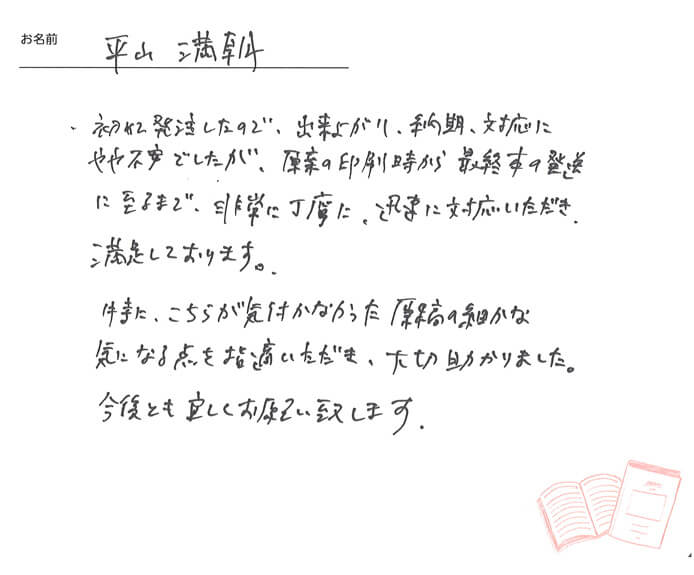 お名前 平山 満朝
・初めて発注したので、出来上がり、納期、対応に
やや不安でしたが、原案の印刷時から最終本の発送
に至るまで、非常に丁寧に、迅速に対応いただき、
満足しております。
特に、こちらが気付かなかった原稿の細かな
気になる点を指摘いただき、大切助かりました。
今後とも宜しくお願い致します。